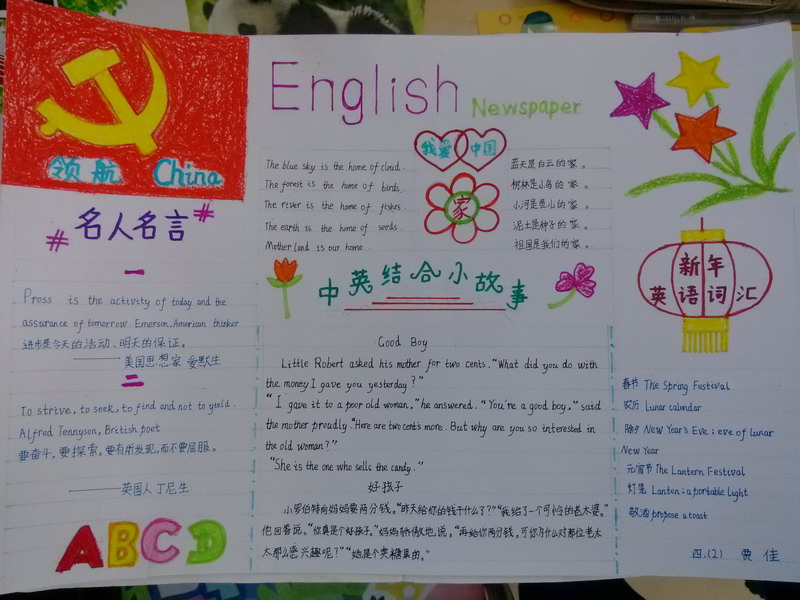 领航 China
# 名人名言 #
一
Pross is the activity of today and the
assurance of tomorrow. Emerson, American thinker
进步是今天的活动、明天的保证。
——美国思想家 爱默生
二
To strive, to seek, to find and not to yield.
Alfred Tennyson, British poet
要奋斗,要探索,要有所发现,而不要屈服。
——英国人丁尼生
ABCD
English Newspaper
我爱 中国
The blue sky is the home of cloud.
The forest is the home of birds.
The river is the home of fishes.
The earth is the home of seeds.
Mother land is our home.
家
蓝天是白云的家。
树林是小鸟的家。
小河是鱼儿的家。
泥土是种子的家。
祖国是我们的家。
中英结合小故事
Good Boy
Little Robert asked his mother for two cents. "What did you do with
the money I gave you yesterday?"
"I gave it to a poor old woman," he answered. "You're a good boy," said
the mother proudly. "Here are two cents more. But why are you so interested in
the old woman?"
"She is the one who sells the candy."
好孩子
小罗伯特向妈妈要两分钱。"昨天给你的钱干什么了?""我给了一个可怜的老太婆,"
他回答说。"你真是个好孩子,"妈妈骄傲地说。"再给你两分钱,可你为什么对那位老太
太那么感兴趣呢?""她是个卖糖果的。"
新年
英语词汇
春节 The Spring Festival
农历 Lunar calendar
除夕 New Year's Eve; eve of lunar
New Year
元宵节 The Lantern Festival
灯笼 Lanten; a portable light
敬酒 propose a toast
四.(2) 贾佳